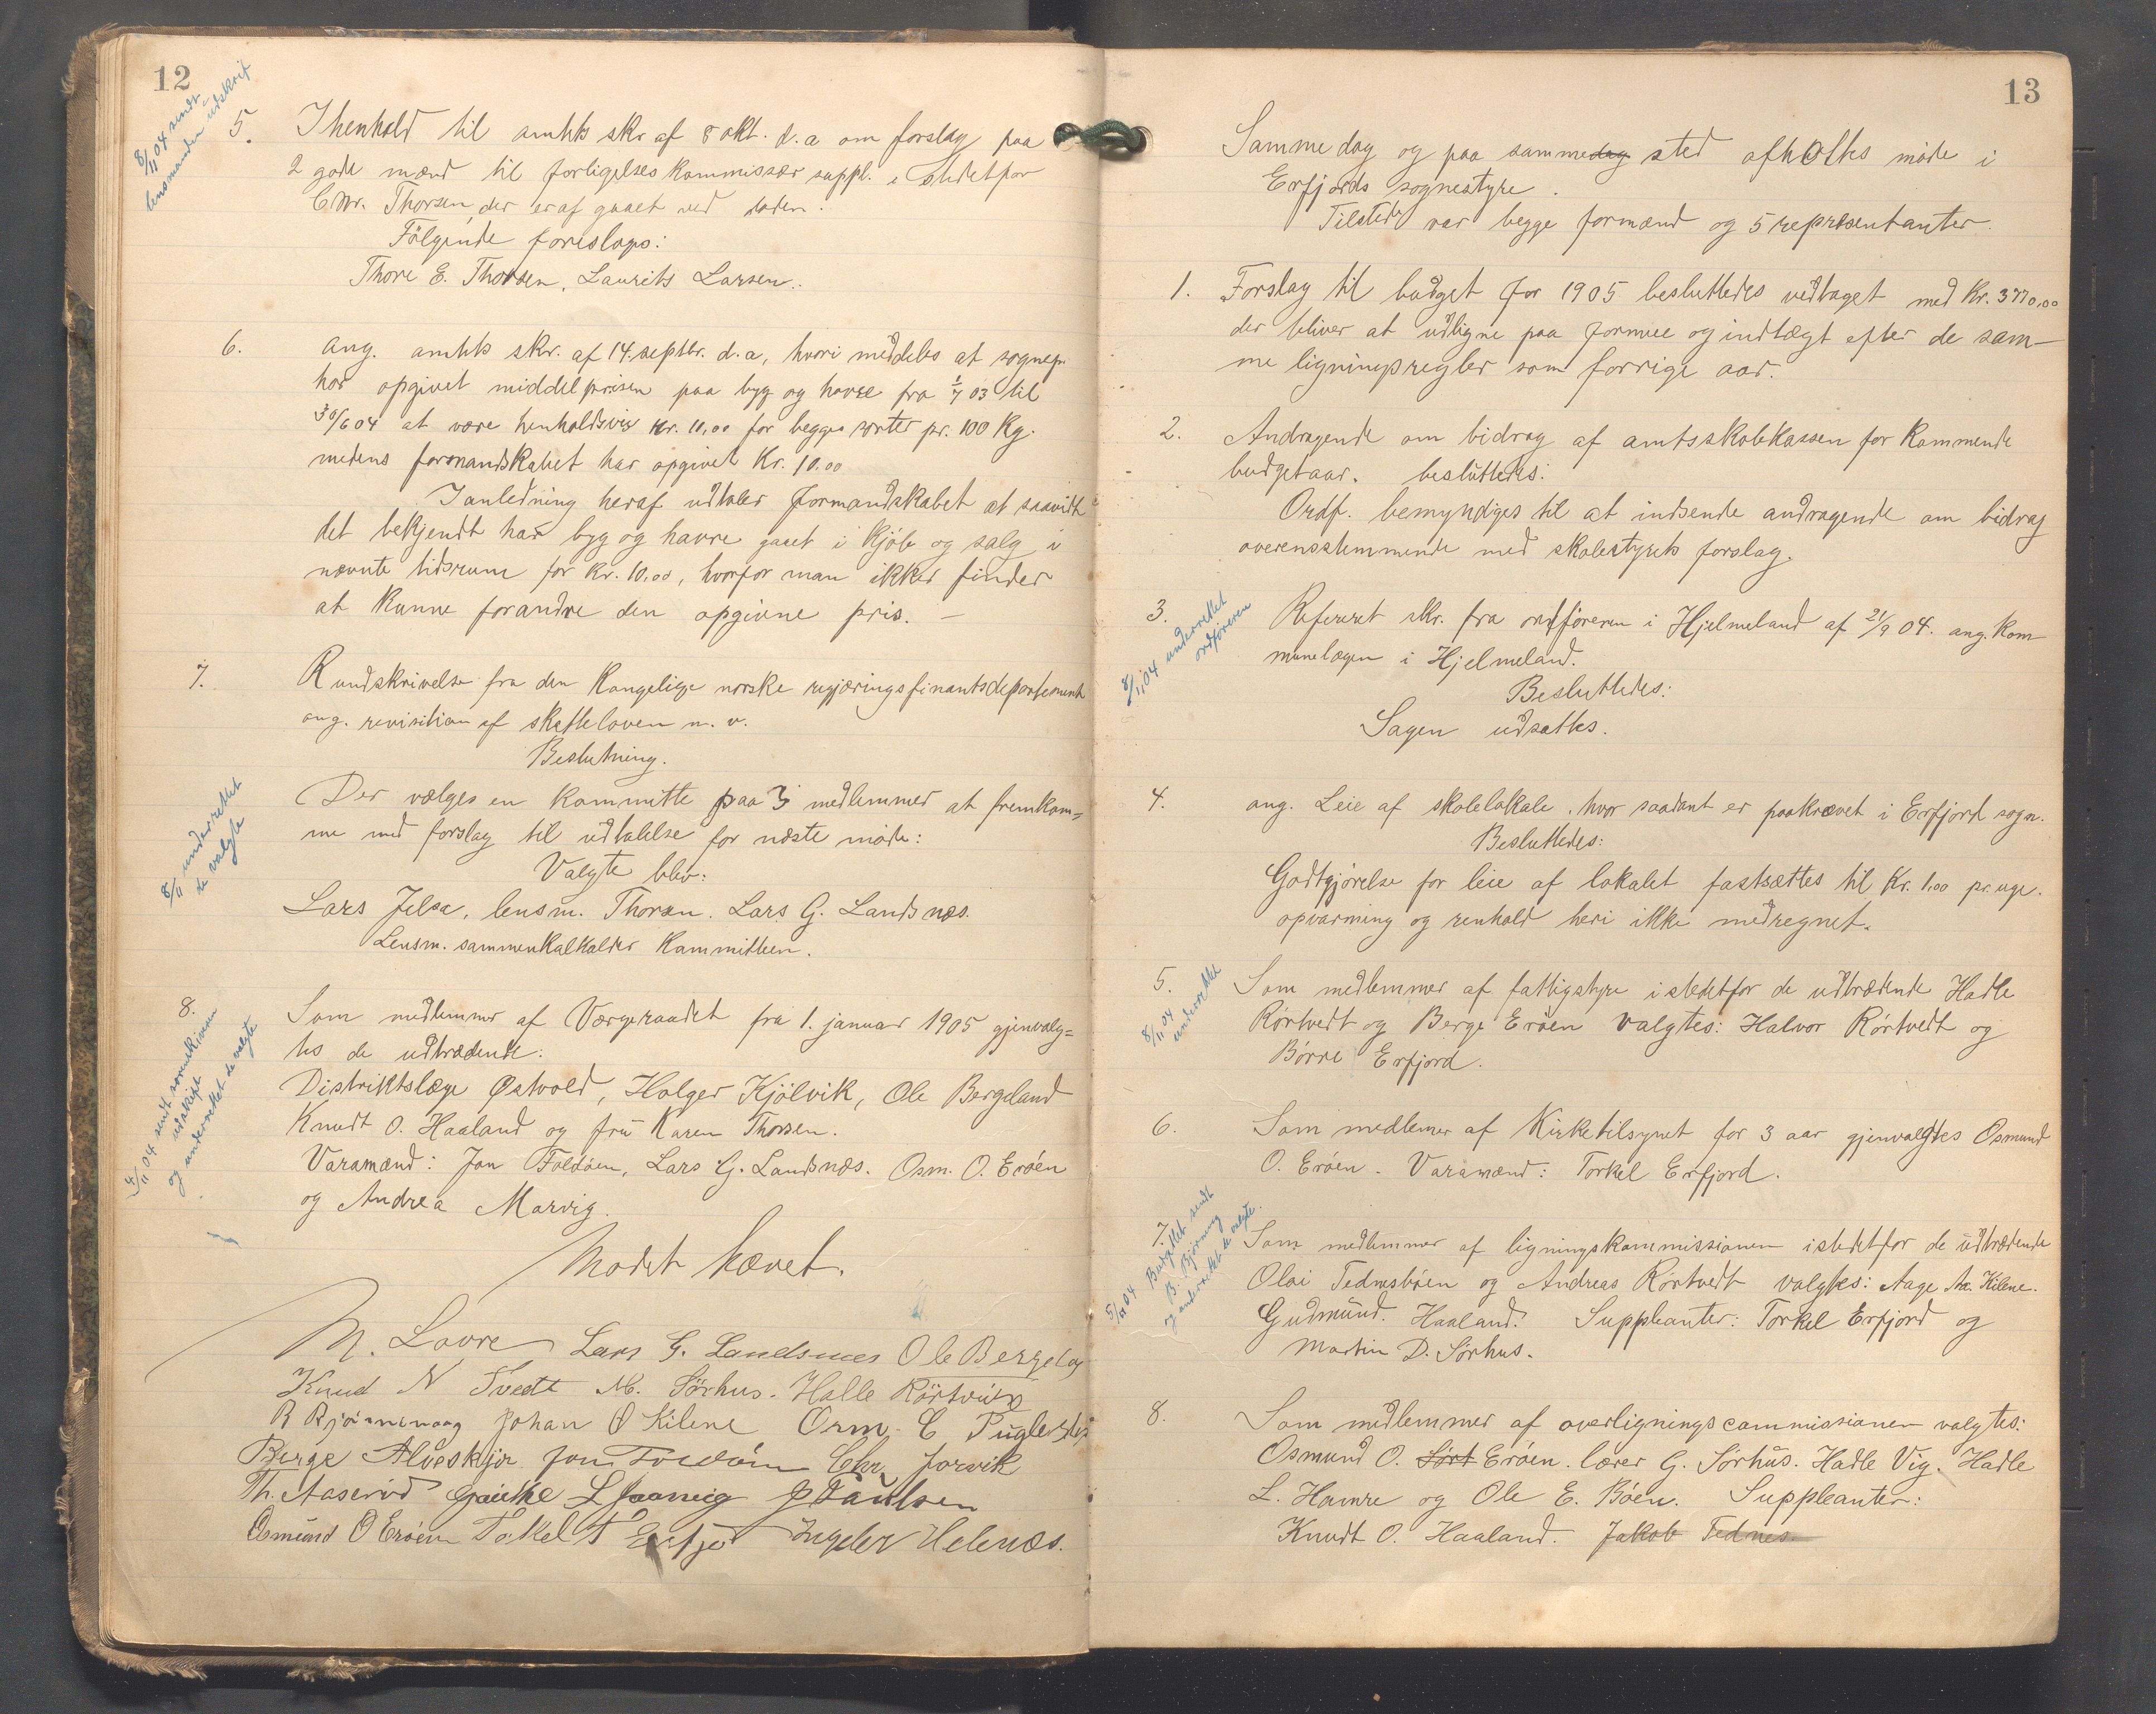 12
8/11 04 sendt
lensmanden udskrift
5. I henhold til amtets skr. af 8 okt. d.a om forslag paa
2 gode mænd til forligelseskommissær suppl. istedetfor
Chr. Thorsen, der er afgaaet ved døden.
Følgende foreslaaes:
Thore E. Thorsen, Laurits Larsen.
6. Ang. amtets skr. af 14. septbr. d.a, hvori meddeles at sognepr.
har opgivet middelprisen paa byg og havre fra 1/7 03 til
30/6 04 at være henholdsvis kr. 11,00 for begge sorter pr. 100 Kg.
medens formandskabet har opgivet Kr. 10.00
I anledning heraf udtaler formandskabet at saavidt
det bekjendt har byg og havre gaaet i kjøb og salg i
nævnte tidsrum for kr. 10.00, hvorfor man ikke finder
at kunne forandre den opgivne pris. —
7. Rundskrivelse fra den Kongelige norske regjærings finantsdepartement
ang. revisition af skatteloven m. v.
Beslutning.
8/11 underrettet
de valgte
Der vælges en kommitte paa 3 medlemmer at fremkom=
me med forslag til udtalelse for næste møde:
Valgte blev:
Lars Jelsa, lensm. Thorsen. Lars G. Landsnæs.
Lensm. sammenkalkalder kammitteen.
8. Som medlemmer af Værgeraadet fra 1. januar 1905 gjenvalg=
tes de udtrædende:
Distriktslæge Østvold, Holger Kjölvik, Ole Bergeland
Knudt O. Haaland og fru Karen Thorsen.
Varamænd: Jon Foldöen, Lars G. Landsnæs. Osm. O. Eröen
og Andrea Marvig.
4/11 04 sendt
udskrift
og underrettet de valgte
Mødet hævet.
M. Lovre Lars G. Landsnæs Ole Bergeland
Knud N Tvedt M. Sörhus. Halle Rörtveit
Johan O Kilene Orm. C
Berge Alveskjer Jon Foldöen Chr Jorvik
Th. Aaserød
Osmund O Eröen Torkel T Erfjord Ingebr Helenæs.
13
Samme dag og paa sammedag sted afholtes møde i
Erfjords sognestyre.
Tilstede var begge formænd og 5 repræsentanter.
1. Forslag til budget for 1905 besluttedes vedtaget med Kr. 3770,00
der bliver at udligne paa formue og indtægt efter de sam-
me ligningsregler som forrige aar.
2. Andragende om bidrag af amtsskolekassen for kommende
budgetaar. besluttedes:
Ordf. bemyndiges til at indsende andragende om bidrag
overensstemmende med skolestyrets forslag.
8/11 04 underrettet
ordføreren
3. Refereret skr. fra ordføreren i Hjelmeland af 21/9 04. ang. kom
munelægen i Hjelmeland.
Besluttedes:
Sagen udsattes.
4. ang. Leie af skolelokale, hvor saadant er paakrævet i Erfjord sogn.
Besluttedes:
Godtgjørelse for leie af lokalet fastsættes til Kr. 1.00 pr. uge.
opvarming og renhold heri ikke medregnet.
8/11 04
underrettet
5. Som medlemmer af fattigstyre istedetfor de udtrædende Hadle
Rörtvedt og Berge Eröen valgtes: Halvor Rörtvedt og
Börre Erfjord.
6. Som medlemer af Kirketilsynet for 3 aar gjenvalgtes Osmund
O. Eröen. Varamænd: Torkel Erfjord.
5/12 04 Budgettet sendt
B. Bjorning
og underrettet de valgte.
7. Som medlemmer af ligningskommissionen istedetfor de udtrædende
Olai Tednesböen og Andreas Rörtvedt valgtes: Aage Aa. Kilene.
Gudmund. Haaland. Suppleanter: Torkel Erfjord og
Martin D. Sörhus.
8. Som medlemmer af overligningscommissionen valgtes:
Osmund O. Sört Eröen. lærer G. Sörhus. Hadle Vig. Hadle
L. Hamre og Ole E. Böen. Suppleanter:
Knudt O. Haaland. Jakob Tednes